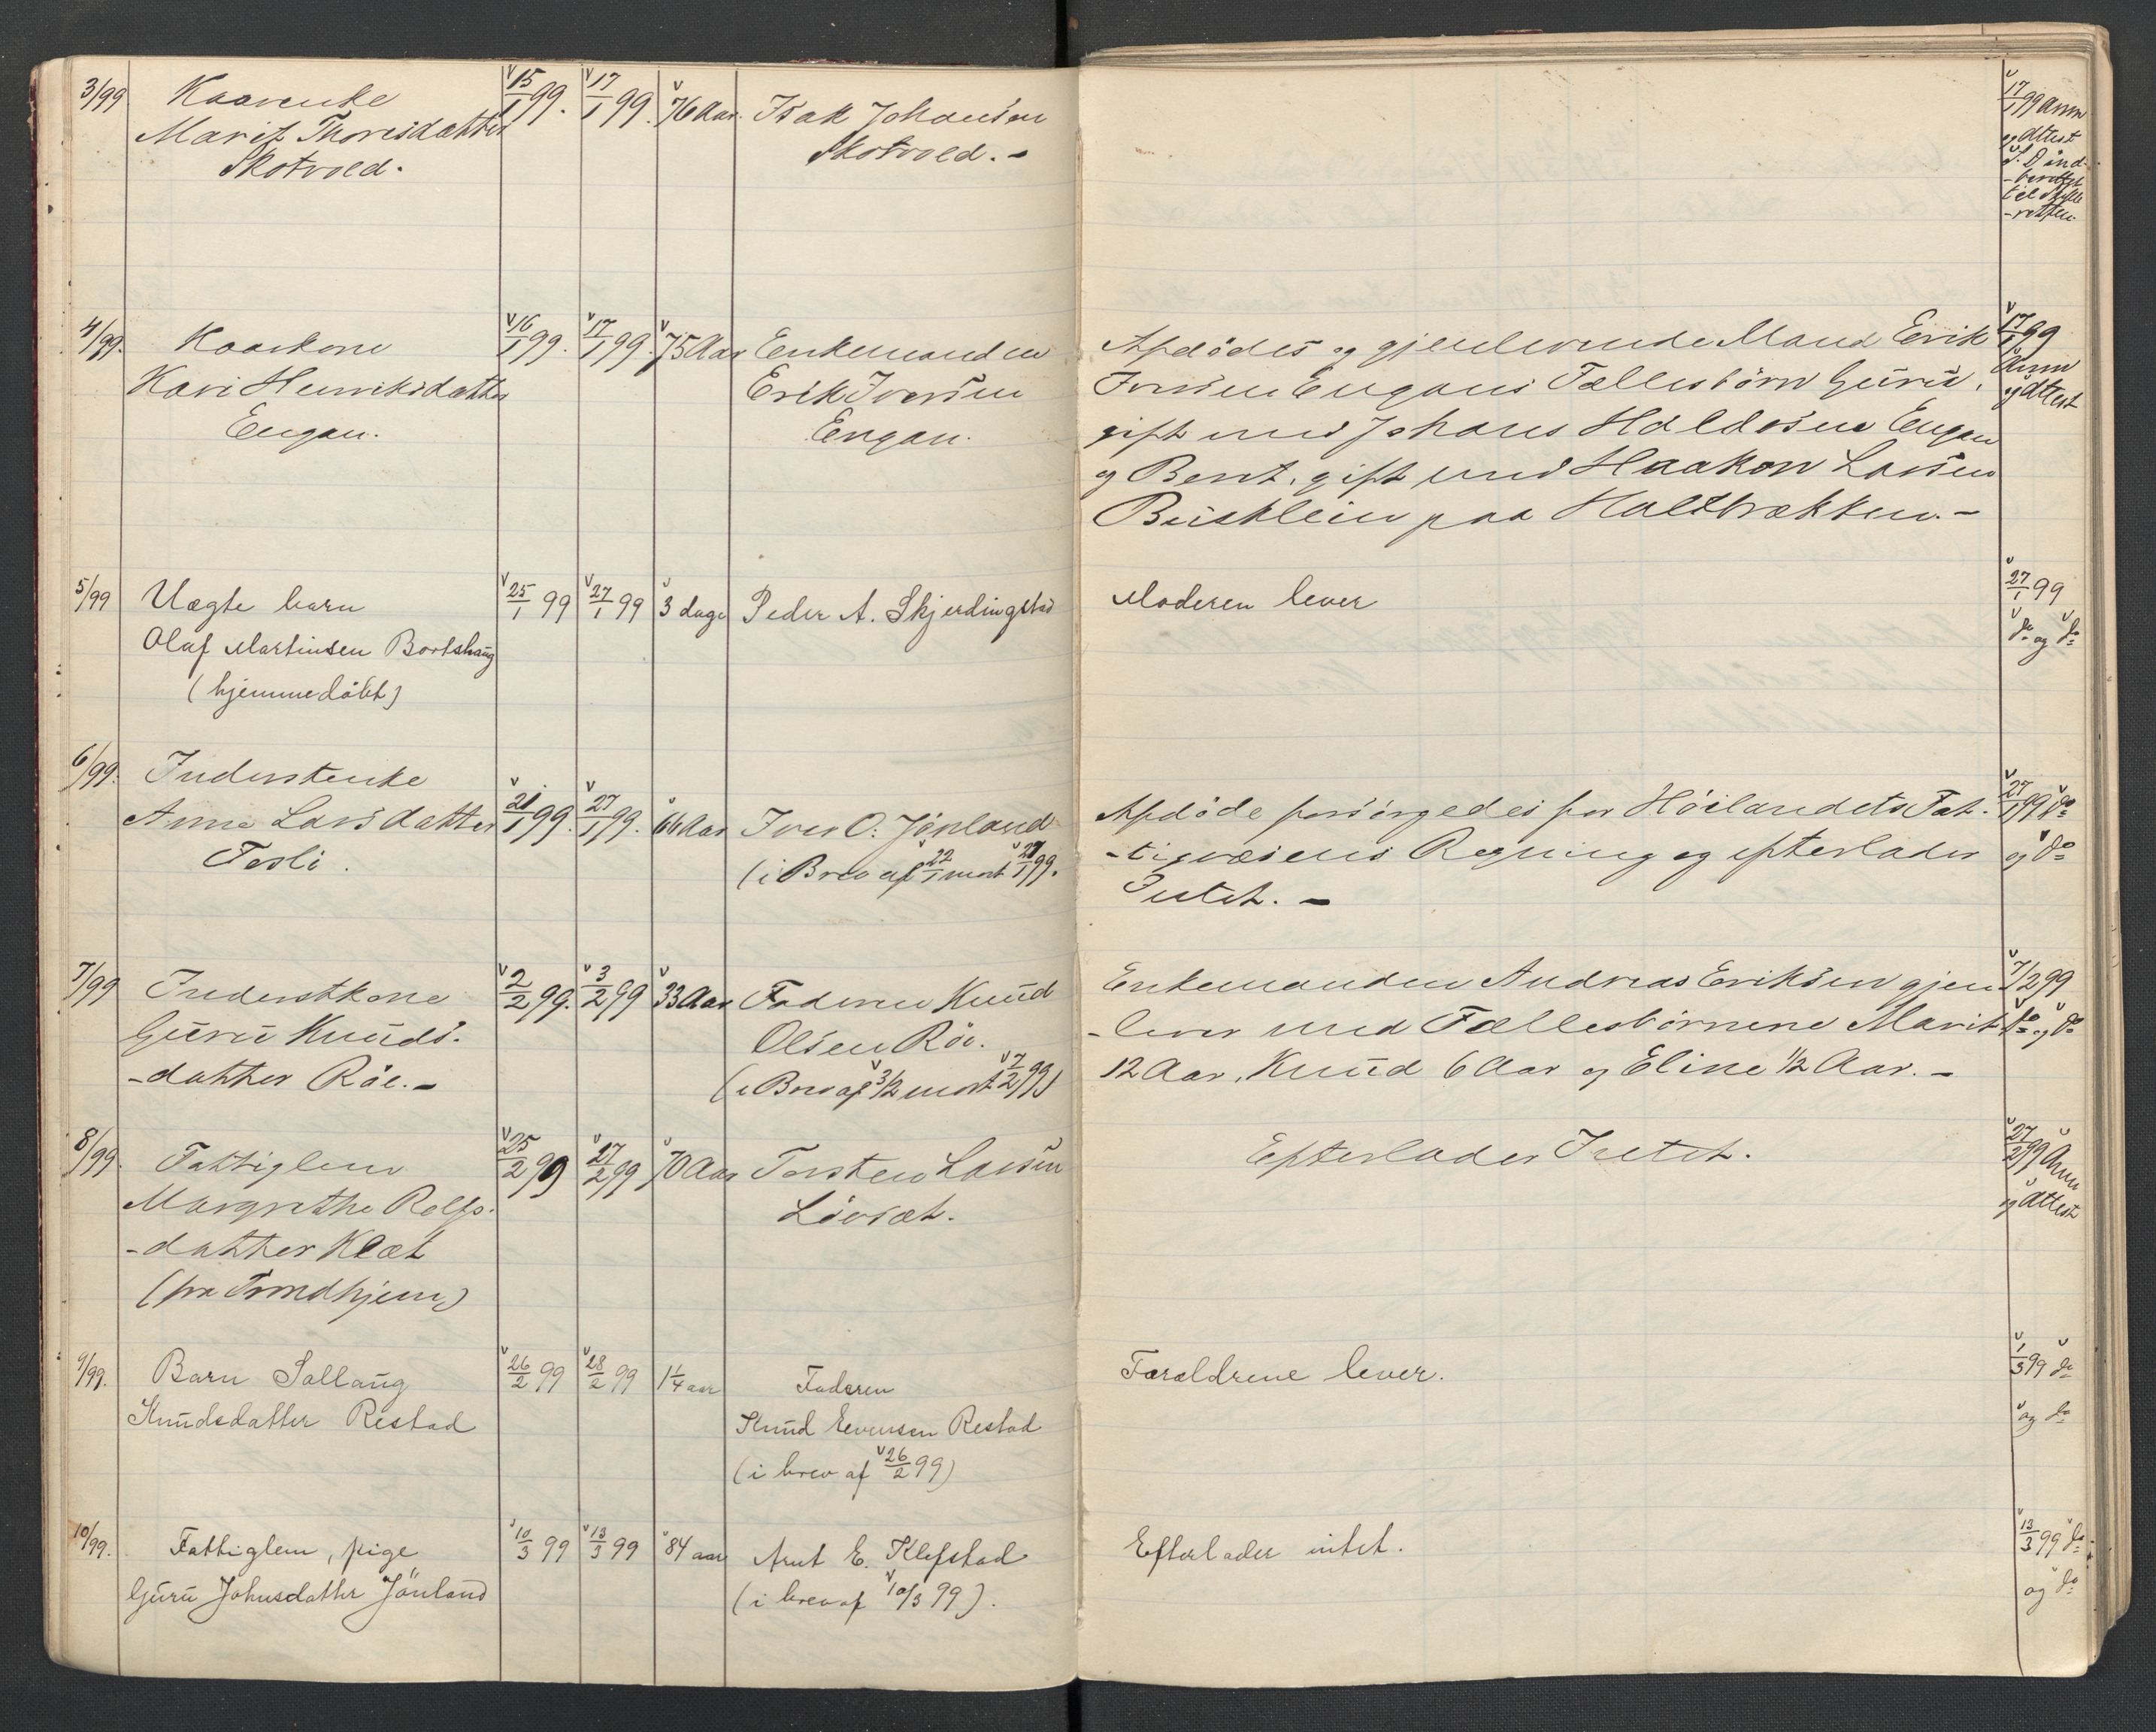 3/99 Kaarenke 15/1 99. 17/1 99. 76 Aar. Isak Johansen
Marit Thoresdatter Skotvold. -
Skotvold.
17/1 99 Ann
og Attest
S. D ind-
-berettet
til Skifte
-retten
4/99. Kaarkone 16/1 99. 17/1 99. 75 Aar Enkemanden
Kari Henriksdatter Erik Iversen
Engan. Engan.
Afdødes og gjenlevende Mand Erik 17/1 99
Iversen Engans Fællesbørn Guru, Ann
gift med Johans Haldosen Engan og Attest
og Berit, gift med Haakon Larsen
paa Haltbrækken. -
5/99 Uægte barn 25/1 99 27/1 99 3 dage Peder A. Skjerdingstad
Olaf Martinsen Bortshaug
(hjemmedøbt)
Moderen lever 27/1 99
do og do
6/99. Inderstenke
Anne Larsdatter 21/1 99. 27/1 99. 66 Aar Iver O. Jønland
Tesli. (i Brev af 22/1 mort 27/1 99.
Afdøde forsørgedes for Høilandets Fat- 27/1 99 do
-tigvæsens Regning og efterlader og do
Intet. -
7/99 Inderstkone 2/2 99. 3/2 99 33 Aar Faderen Knud
Guru Knuds- Olsen Røe.
-datter Røe. - (i Brev af 3/2 mort 7/2 99)
Enkemanden Andreas Eriksen gjen- 7/2 99
-lever med Fællesbørnene Marit do og do
12 Aar, Knud 6 Aar og Eline 1/2 Aar. -
8/99. Fattiglem 25/2 99 27/2 99 70 Aar Torsten Larsen
Margrethe Rolfs- Løvset.
-datter Klæt
(fra Trondhjem)
Efterlader Intet. 27/2 99 Ann
og Attest
9/99. Barn Sollaug 26/2 99 28/2 99 1 1/4 aar Faderen
Knudsdatter Restad Knud Evensen Restad
(i brev af 26/2 99)
Forældrene lever. 1/3 99 do
og do
10/99. Fattiglem, pige 10/3 99 13/3 99 84 aar Arnt E. Klefstad
Guru Johnsdatter Jönland (i brev af 10/3 99).
Efterlader intet. 13/3 99 do
og do